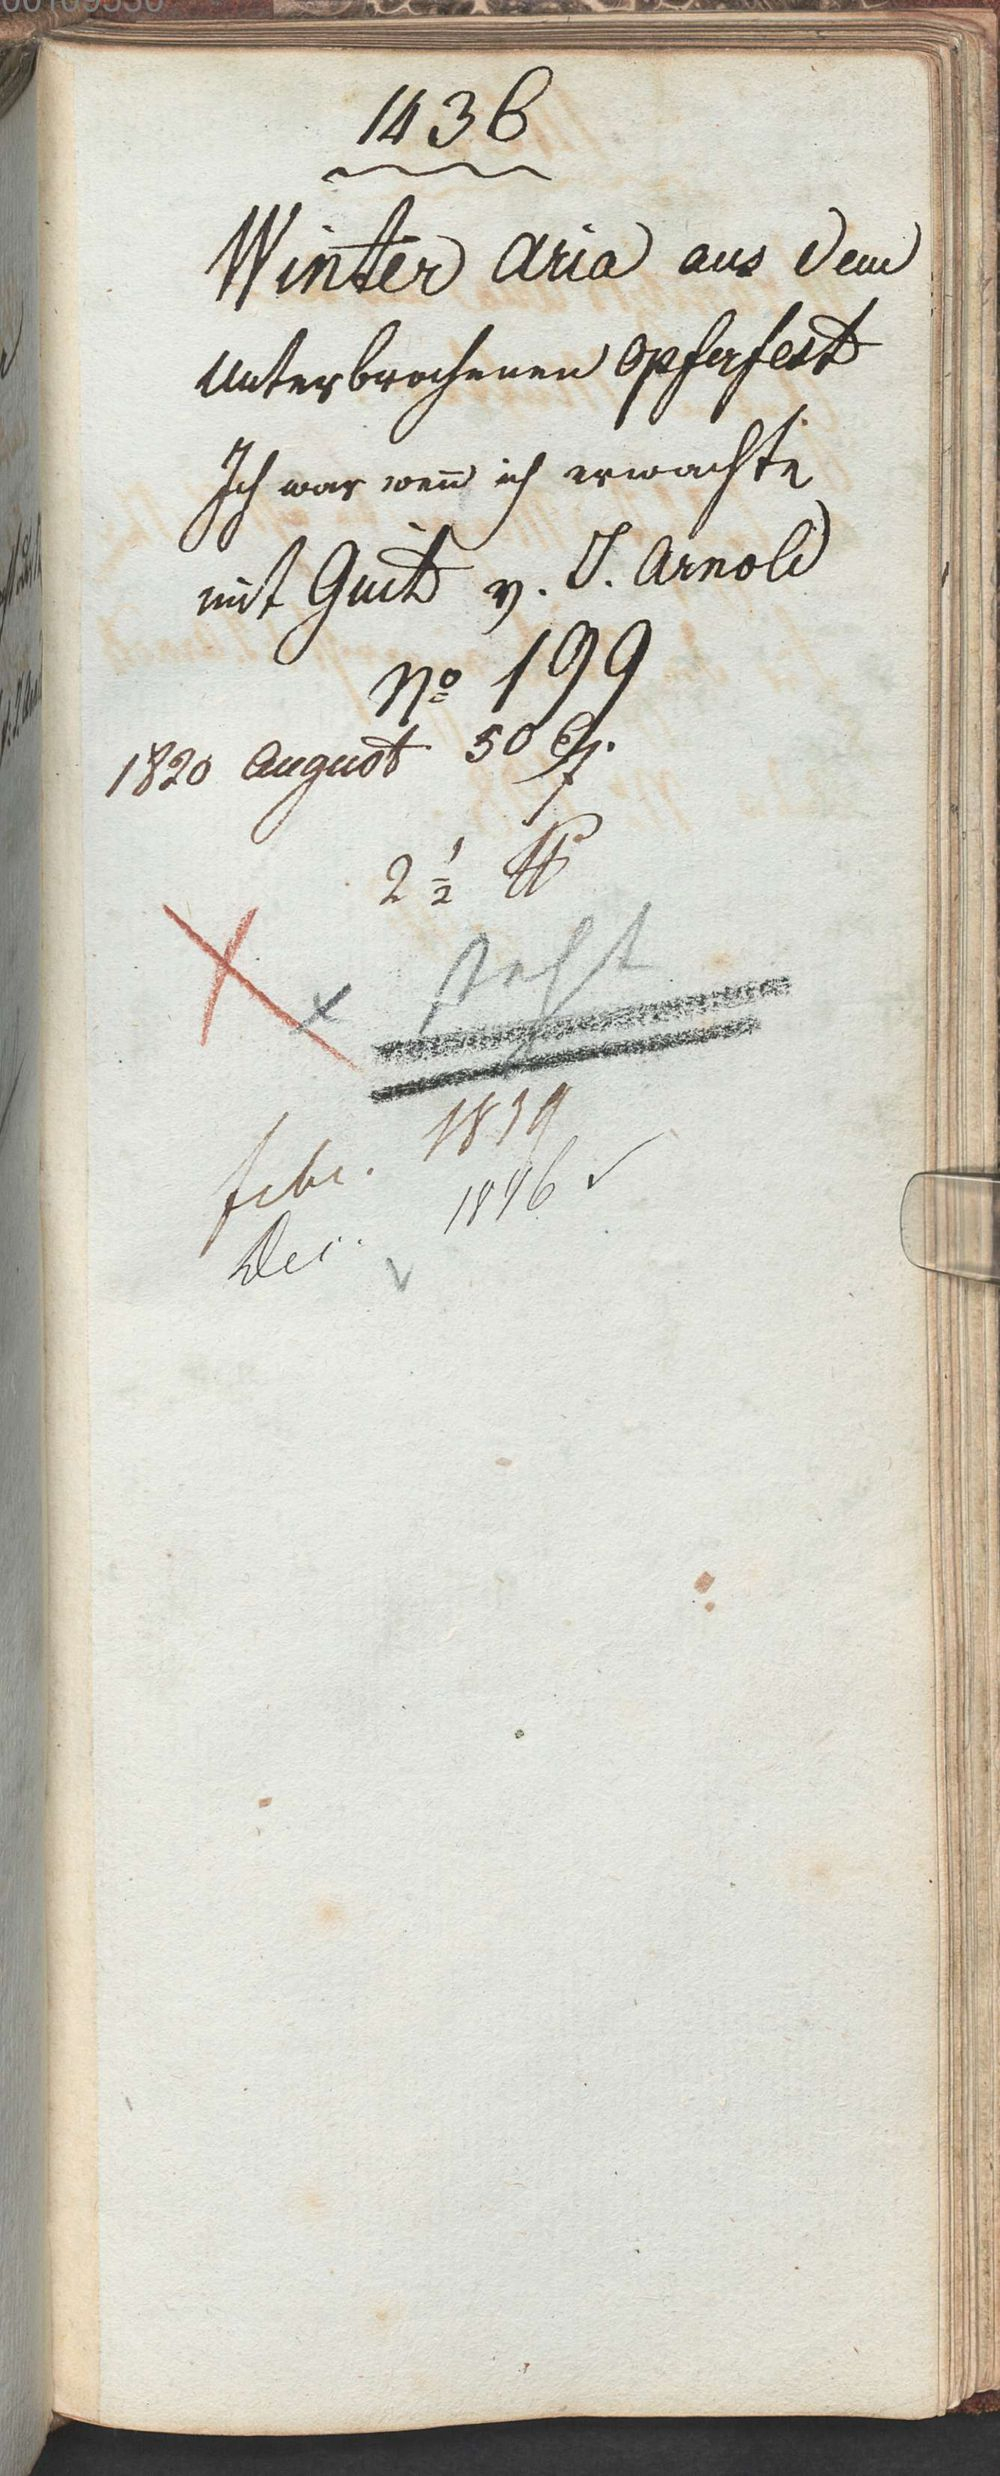 1436
Winter Aria aus dem
unterbrochenen Opferfest
Ich war wen̄ ich erwachte
mit Guit v. J. Arnold
No 199
1820 August 50 Ex.
2 1/2
steht
febr. 1839
Dec. 1846 ✓